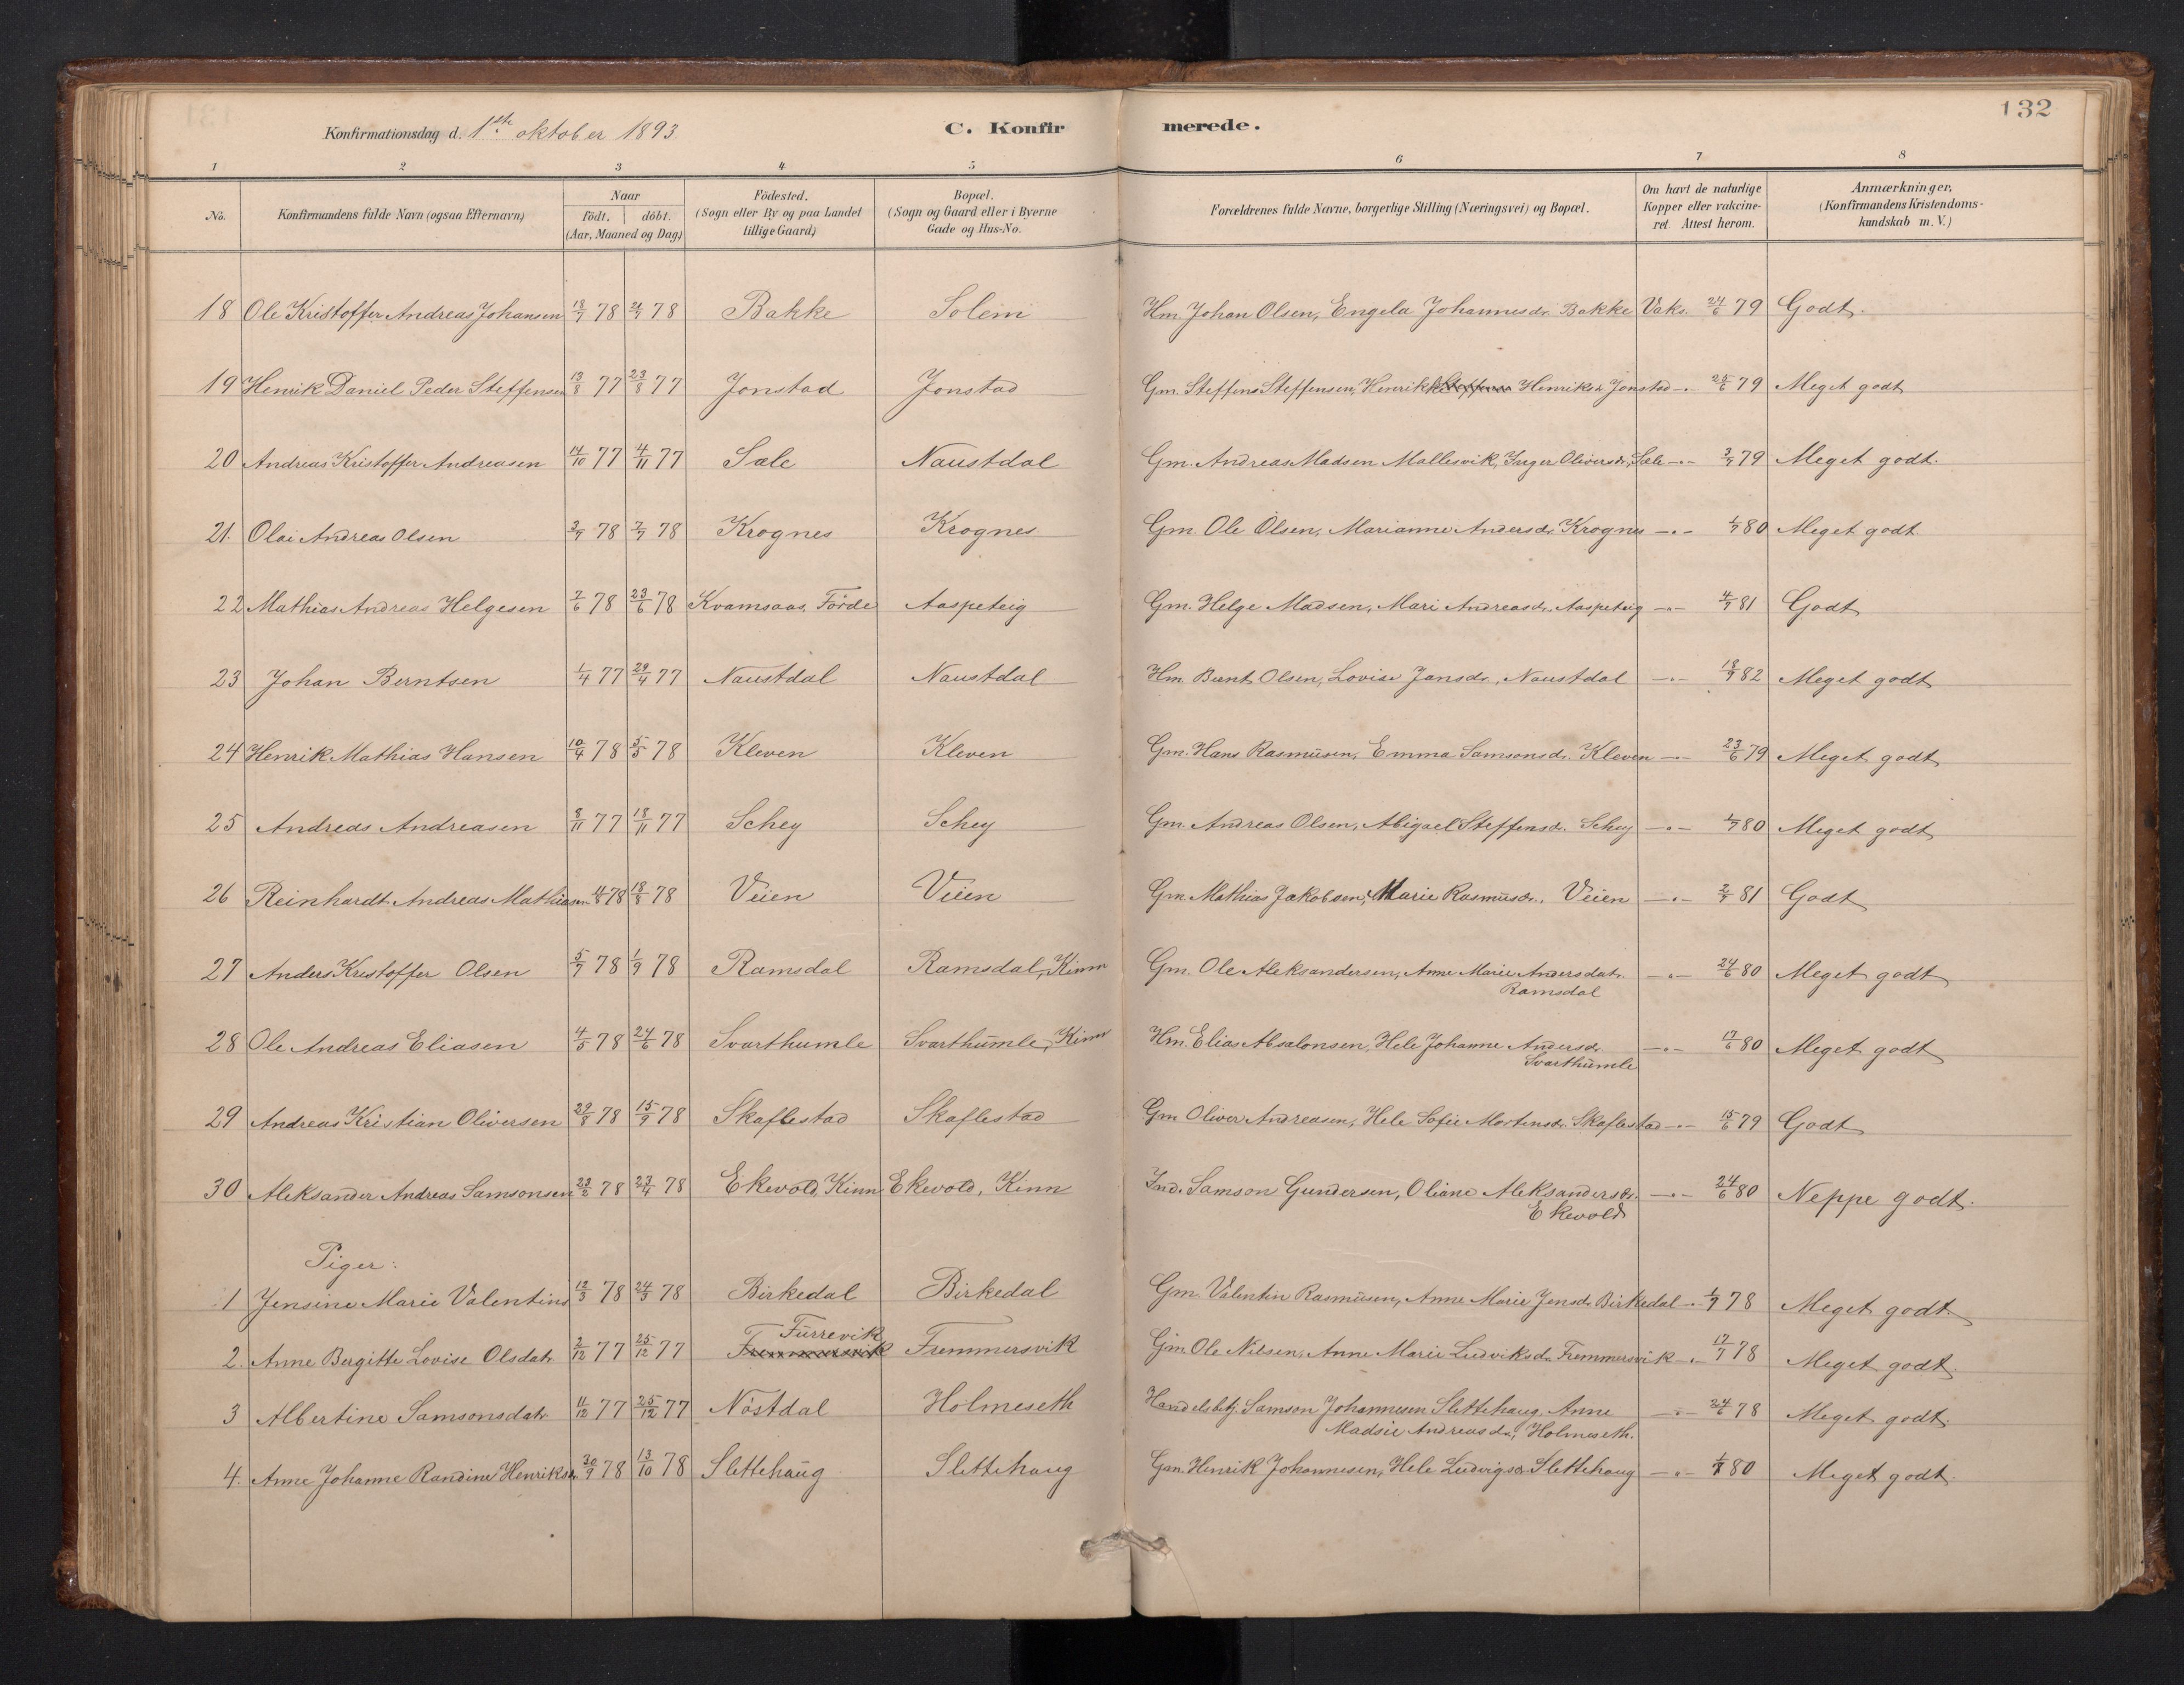 132
Konfirmationsdag d. 1ste oktober 1893. C. Konfirmerede.
1 2 3 4 5 6 7 8
No. Konfirmandens fulde Navn (ogsaa Efternavn) Naar født. døbt. (Aar, Maaned og Dag) Födested. (Sogn eller By og paa Landet tillige Gaard) Bopæl. (Sogn og Gaard eller i Byerne Gade og Hus-No. Forældrenes fulde Navne, borgerlige Stilling (Næringsvei) og Bopæl. Om havt de naturlige Kopper eller vakcineret. Attest herom. Anmærkninger. (Konfirmandens Kristendomskundskab m. V.)
18 Ole Kristoffer Andreas Johansen 18/7 78 21/7 78 Bakke Solem Hm. Johan Olsen, Engela Johannesdr. Bakke Vaks. 24/6 79 Godt.
19 Henrik Daniel Peder Steffensen 13/8 77 23/8 77 Jonstad Jonstad Gm. Steffens Steffensen, Henrikke Henriksdr. Jonstad -"- 25/6 79 Meget godt
20 Andreas Kristoffer Andreasen 14/10 77 4/11 77 Sæle Naustdal Gm. Andreas Madsen Mallesvik, Inger Oliversdr., Sæle -"- 3/9 79 Meget godt.
21. Olai Andreas Olsen 78 7/7 78 Krognes Krognes Gm. Ole Olsen, Marianne Andersdr. Krognes -"- 80 Meget godt.
22 Mathias Andreas Helgesen 7/6 78 23/6 78 Kvamsaas, Förde Aaspeteig Gm. Helge Madsen, Mari Andreasdr. Aaspeteig -"- 4/7 81 Godt
23 Johan Berntsen 1/4 77 29/4 77 Naustdal Naustdal Hm. Bernt Olsen, Lovise Jansdr., Naustdal -"- 18/9 82 Meget godt
24 Henrik Mathias Hansen 10/4 78 5/5 78 Kleven Kleven Gm. Hans Rasmusen, Emma Samsonsdr. Kleven -"- 23/6 79 Meget godt
25 Andreas Andreasen 8/11 77 18/11 77 Schey Schey Gm. Andreas Olsen, Abigael Steffensdr. Schey -"- 80 Meget godt
26 Reinhardt Andreas Mathiasen 78 18/8 78 Veien Veien Gm. Mathias Jakobsen, Marie Rasmusdr., Veien -"- 81 Godt
27 Anders Kristoffer Olsen 5/7 78 1/9 78 Ramsdal Ramsdal, Kinn Gm. Ole Aleksandersen, Anne Marie Andersdatr. -"- 24/6 80 Meget godt
Ramsdal
28 Ole Andreas Eliasen 4/5 78 24/6 78 Svarthumle Svarthumle, Kinn Hm. Elias Absalonsen, Hele Johanne Andersdr. -"- 17/6 80 Meget godt
Svarthumle
29 Andreas Kristian Oliversen 29/8 78 15/9 78 Skaflestad Skaflestad Gm Oliver Andreasen, Hele Sofie Mortensdr. Skaflestad -"- 15/6 79 Godt
30 Aleksander Andreas Samsonsen 23/2 78 23/4 78 Ekevold, Kinn Ekevold, Kinn Ind. Samson Gundersen, Oliane Aleksandersdr. -"- 24/6 80 Neppe godt.
Ekevold
Piger:
1 Jensine Marie Valentins 12/3 78 24/3 78 Birkedal Birkedal Gm. Valentin Rasmusen, Anne Marie Jensdr. Birkedal -"- 78 Meget godt.
Furrevik
2. Anne Bergitte Lovise Olsdatr. 2/12 77 25/12 77 Fremmersvik Fremmersvik Gm. Ole Nilsen, Anne Marie Ludviksdr. Fremmersvik -"- 17/7 78 Meget godt.
3 Albertine Samsonsdatr. 11/12 77 25/12 77 Nöstdal Holmeseth Handelsbetj. Samson Johannesen Slettehaug, Anne -"- 24/6 78 Meget godt.
Madsie Andreasdr., Holmeseth.
4. Anne Johanne Randine Henriksdr. 30/9 78 13/10 78 Slettehaug Slettehaug Gm. Henrik Johannesen, Hele Ludvigsdr. Slettehaug -"- 80 Meget godt.